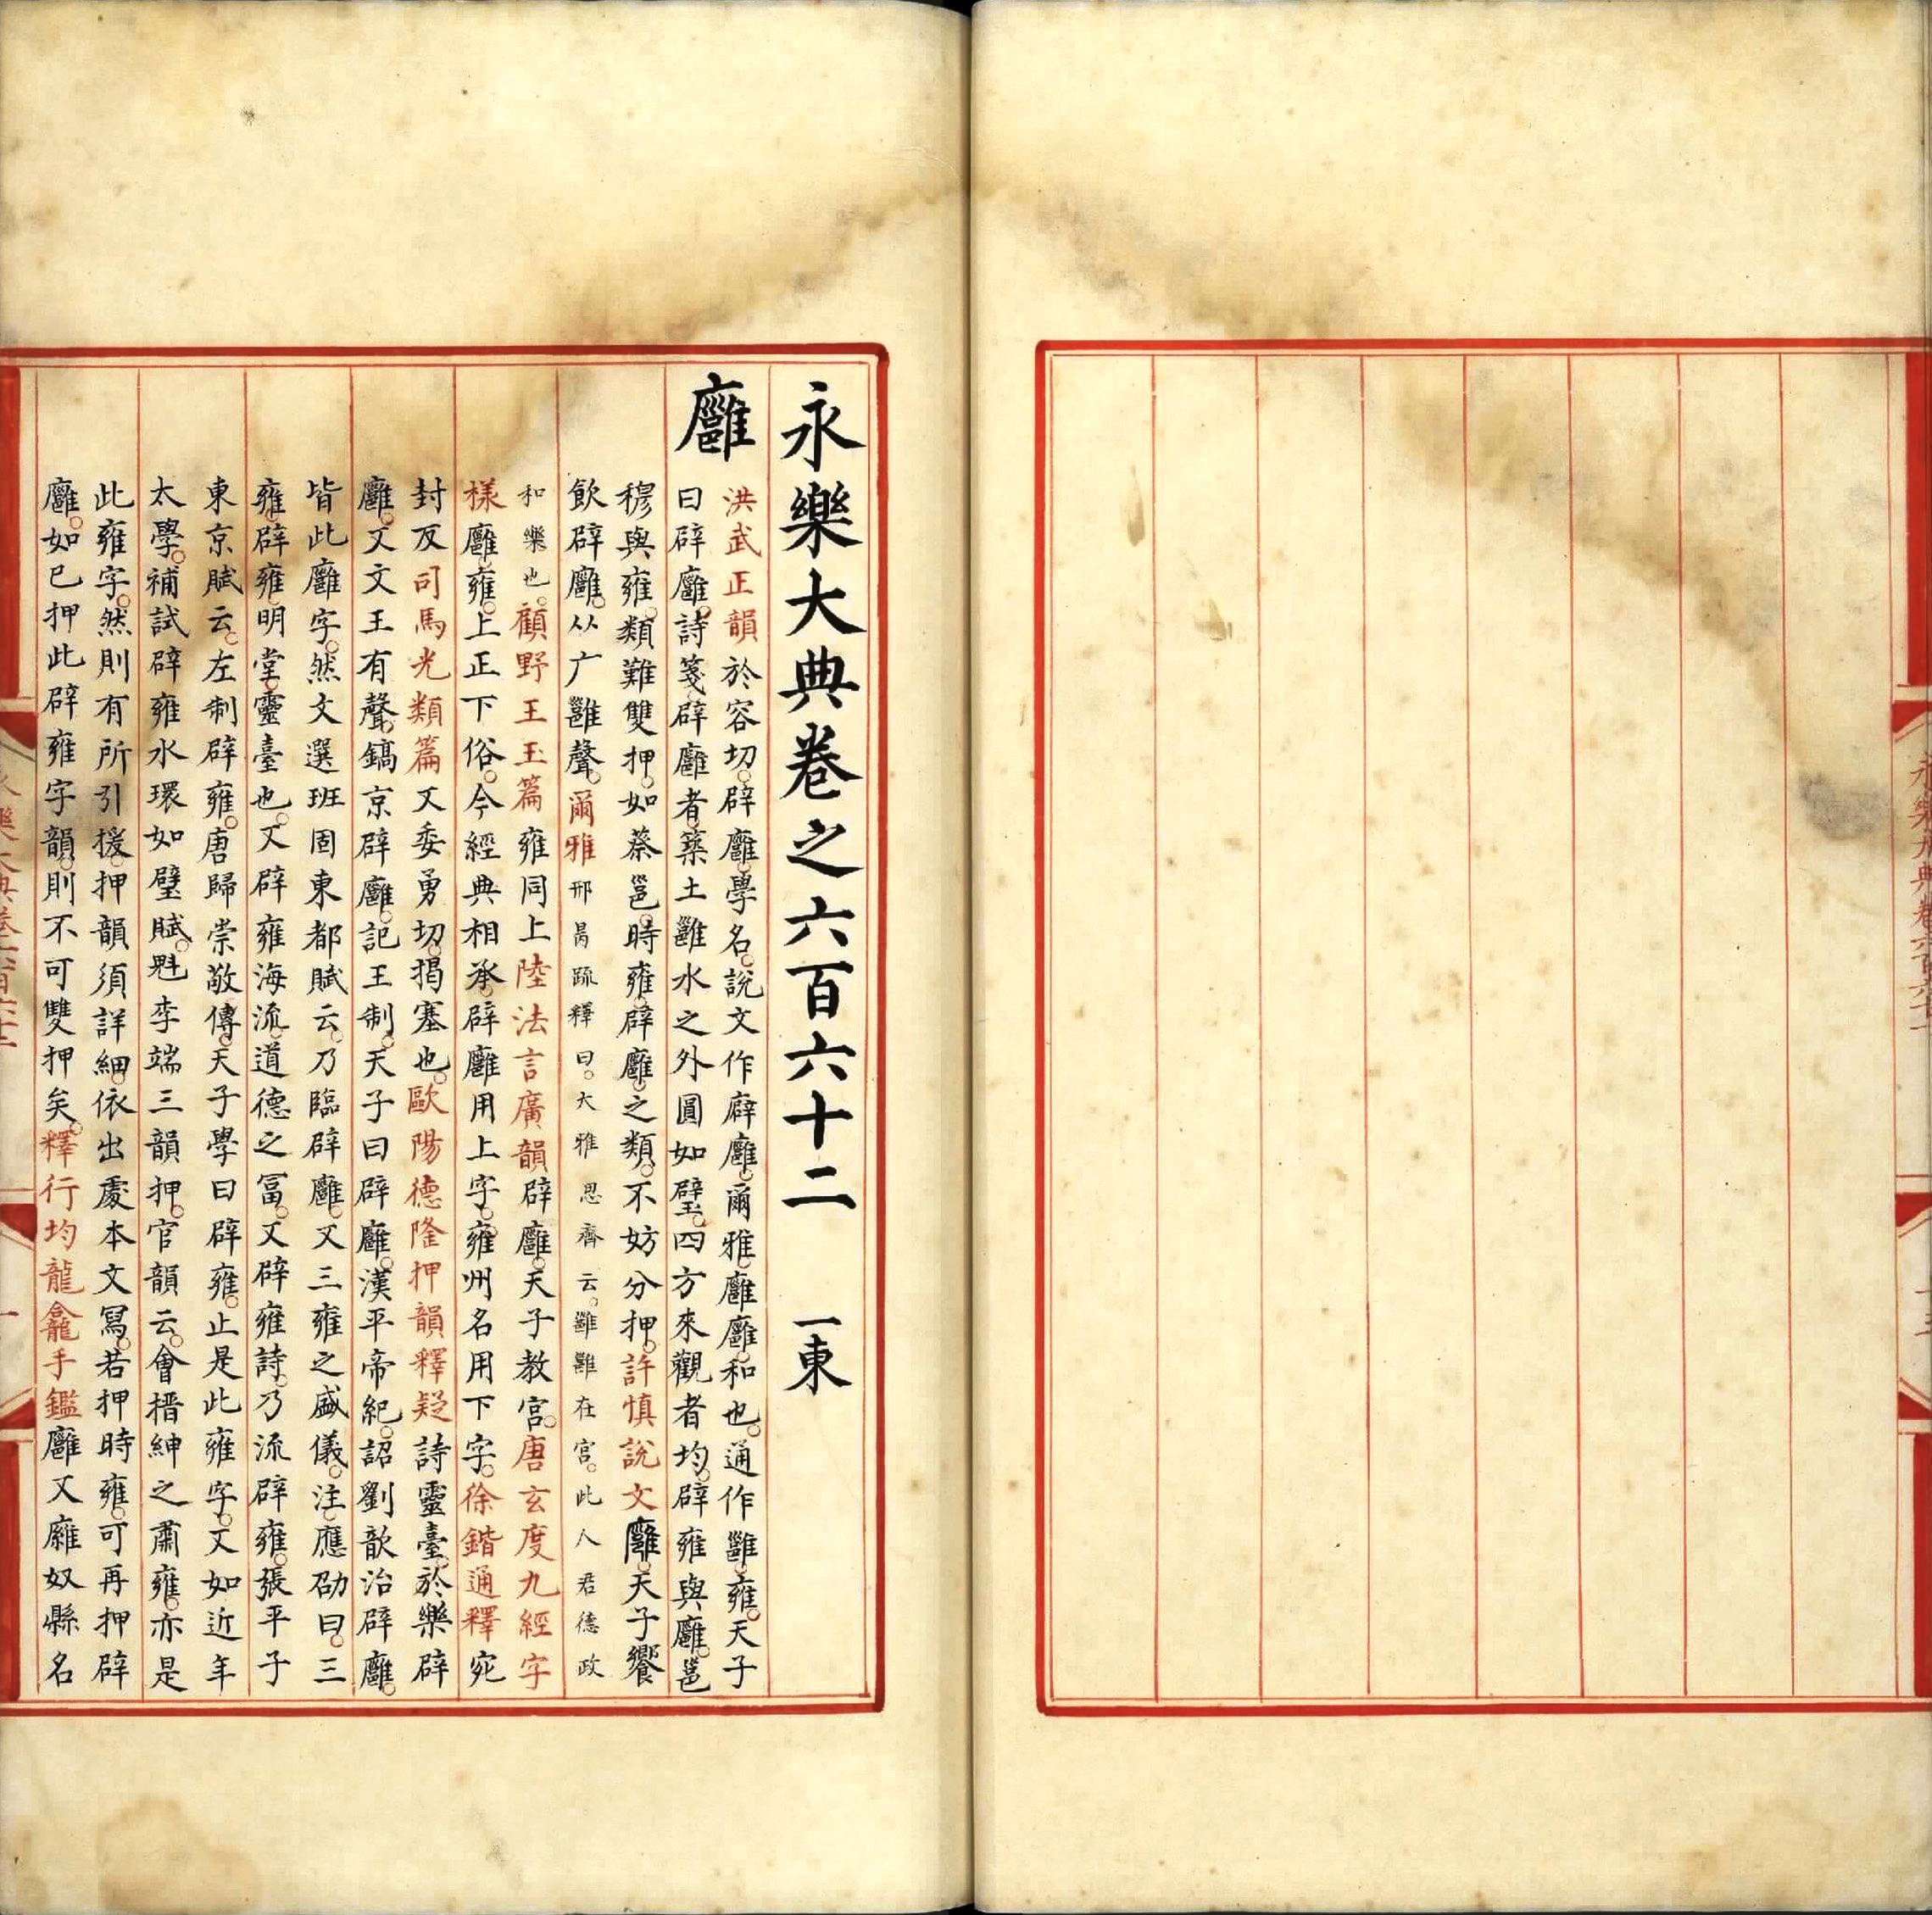 永樂大典卷之六百六十二 一東
廱
洪武正韻於容切辟廱學名說文作廦廱爾雅廱廱和也通作雝雍天子
曰辟廱詩箋辟廱者築土雝水之外圓如璧四方來觀者均辟雍與廱邕
穆與雍類難雙押如蔡邕時雍辟廱之類不妨分押許慎說文廱天子饗
飲辟廱从广雝聲爾雅邢昺疏釋曰大雅思齊云雝雝在宮此人君德政
和樂也顧野王玉篇雍同上陸法言廣韻辟廱天子教宮唐玄度九經字
樣廱雍上正下俗今經典相承辟廱用上字雍州名用下字徐鍇通釋宛
封反司馬光類篇又委勇切擁塞也歐陽德隆押韻釋疑詩靈臺於樂辟
廱又文王有聲鎬京辟廱記王制天子曰辟廱漢平帝紀詔劉歆治辟廱
皆此廱字然文選班固東都賦云乃臨辟廱又三雍之盛儀注應劭曰三
雍辟雍明堂靈臺也又辟雍海流道德之富又辟雍詩乃流辟雍張平子
東京賦云左制辟雍唐歸崇敬傳天子學曰辟雍止是此雍字又如近年
太學補試辟雍水環如璧賦魁李端三韻押官韻云會搢紳之肅雍亦是
此雍字然則有所引援押韻須詳細依出處本文寫若押時雍可再押辟
廱如已押此辟雍字韻則不可雙押矣釋行均龍龕手鑑廱又廱奴縣名